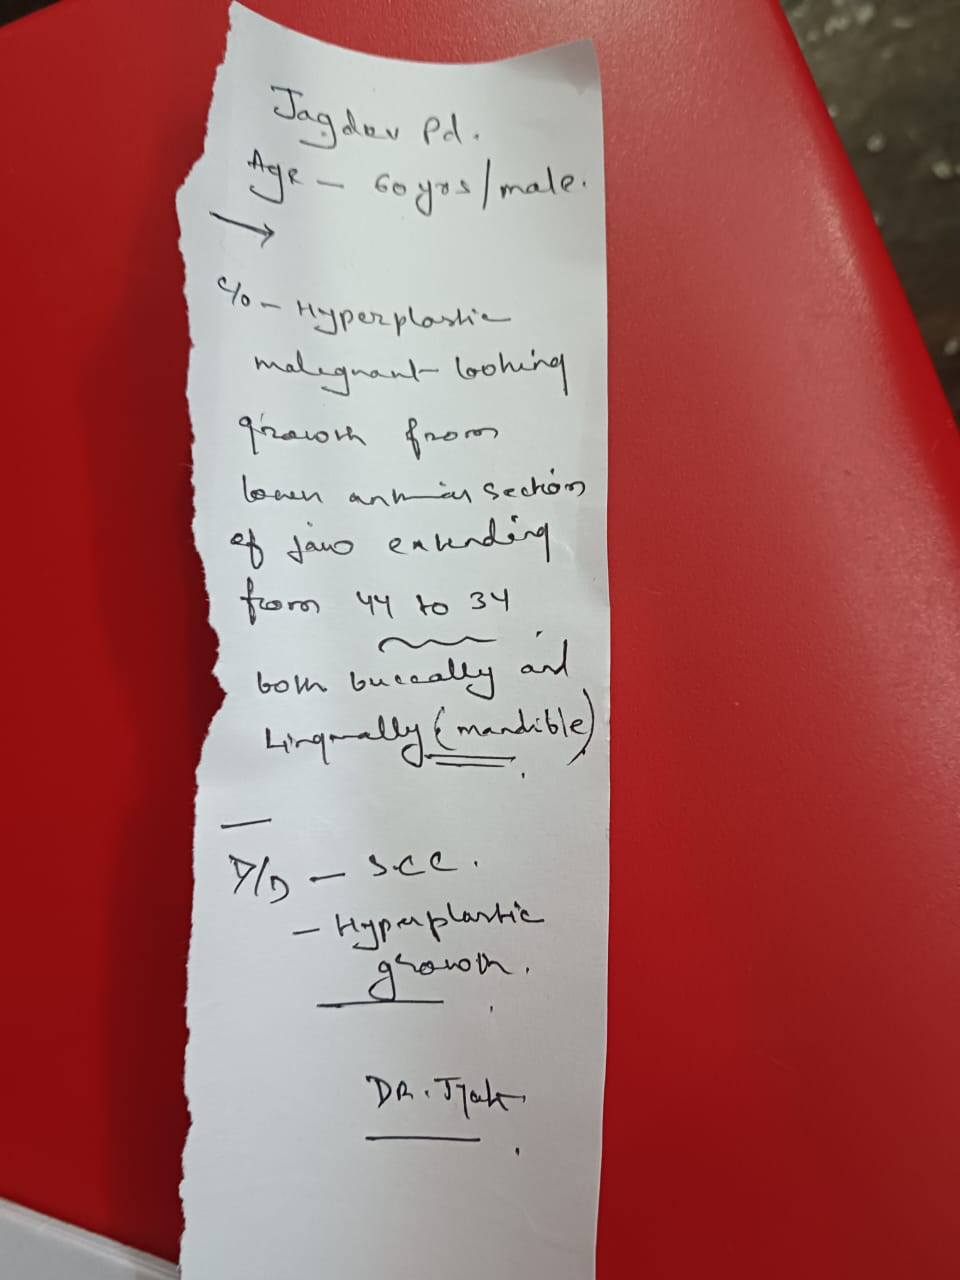 Jagdev Pd.
Age - 60 yrs/male.
→
c/o - Hyperplastic
malignant looking
growth from
lower anterior section
of jaw extending
from 44 to 34
both buccally and
Lingually (mandible)
D/D - SCC.
- Hyperplastic
growth.
DR.